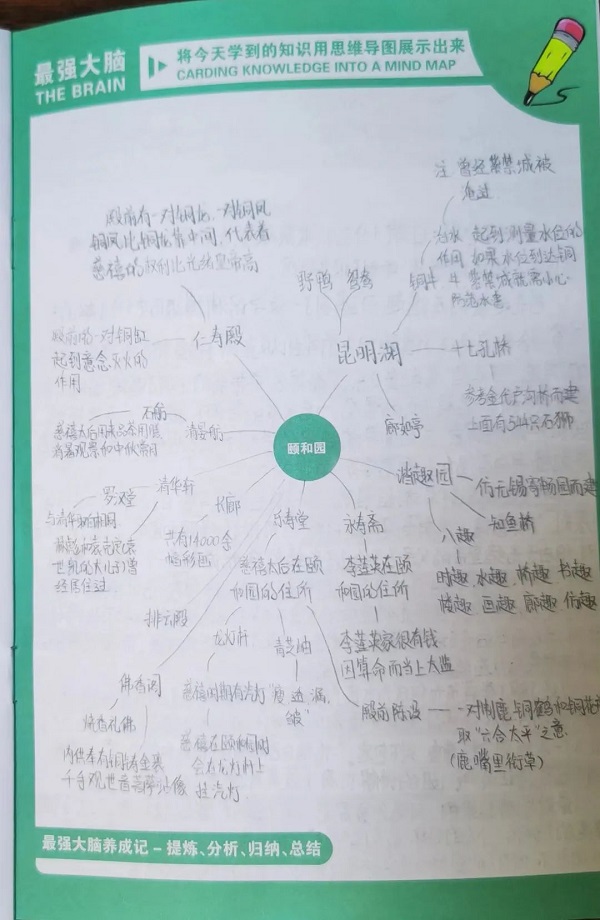 最强大脑
THE BRAIN
将今天学到的知识用思维导图展示出来
CARDING KNOWLEDGE INTO A MIND MAP
注 曾经紫禁城被
淹过
殿前有一对铜龙、一对铜凤
铜凤比铜龙靠中间,代表着
慈禧的权利比光绪皇帝高
治水 起到测量水位的
作用 如果水位到达铜
牛 紫禁城就需小心
防范水患
野鸭 鸳鸯
铜牛
殿前的一对铜缸
起到意念灭火的
作用
仁寿殿
昆明湖
十七孔桥
参考金代卢沟桥而建
上面有544只石狮
石舫
清晏舫
廓如亭
颐和园
谐趣园
仿无锡寄畅园而建
知鱼桥
八趣
时趣 水趣 桥趣 书趣
楼趣 画趣 廊趣 仿趣
罗汉堂
清华轩
长廊
共有14000余
幅彩画
乐寿堂
慈禧太后在颐
和园的住所
永寿斋
李莲英在颐
和园的住所
李莲英家很有钱
因算命而当上太监
经居住过
排云殿
龙灯杆
青芝岫
慈禧时期有汽灯
慈禧在颐和园时
会在龙灯杆上
挂汽灯
"瘦、透、漏、
皱"
佛香阁
烧香礼佛
内供奉有铜铸金装
千手观世音菩萨站像
殿前陈设
一对铜鹿、铜鹤和铜花
取"六合太平"之意
(鹿嘴里衔草)
最强大脑养成记 – 提炼、分析、归纳、总结